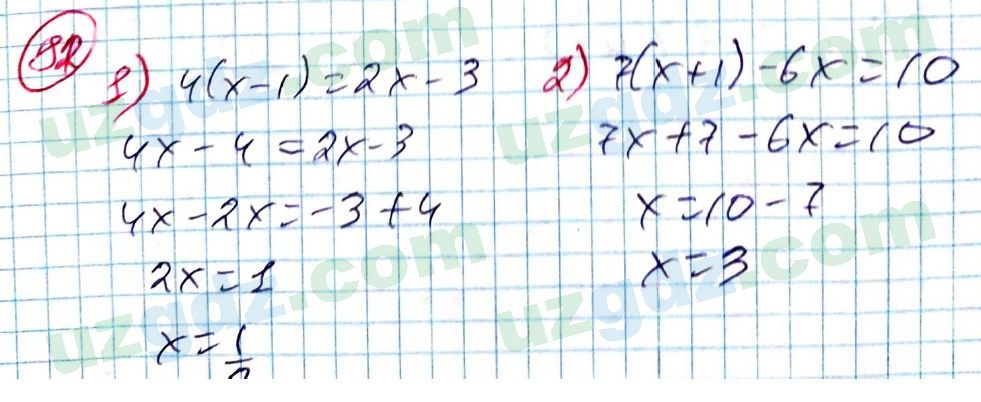 92
1) 4(x-1)=2x-3
4x-4=2x-3
4x-2x=-3+4
2x=1
x=1/2
2) 7(x+1)-6x=10
7x+7-6x=10
x=10-7
x=3
uzgdz.com
uzgdz.com
uzgdz.com
uzgdz.com